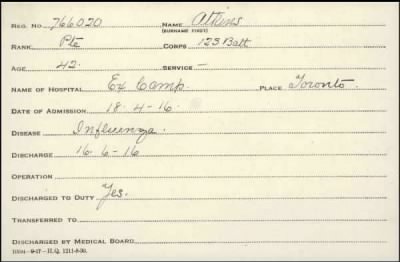 REG. NO. 766020. NAME Atkins
(SURNAME FIRST)
RANK Pte CORPS 123 Batt
AGE 42. SERVICE –
NAME OF HOSPITAL Ex Camp. PLACE Toronto.
DATE OF ADMISSION 18. 4-16.
DISEASE Influenza.
DISCHARGE 16. 6-16
OPERATION
DISCHARGED TO DUTY Yes.
TRANSFERRED TO
DISCHARGED BY MEDICAL BOARD